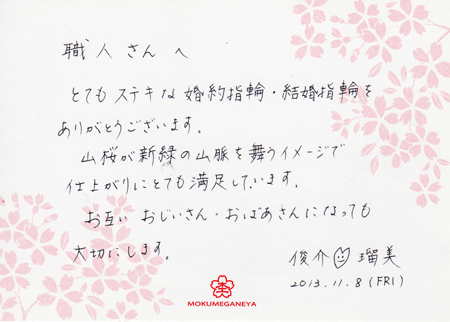 職人さんへ
とてもステキな婚約指輪・結婚指輪を
ありがとうございます。
山桜が新緑の山脈を舞うイメージで
仕上がりにとても満足しています。
お互いおじいさん・おばあさんになっても
大切にします。
俊介 瑠美
2013.11.8 (FRI)
MOKUMEGANEYA